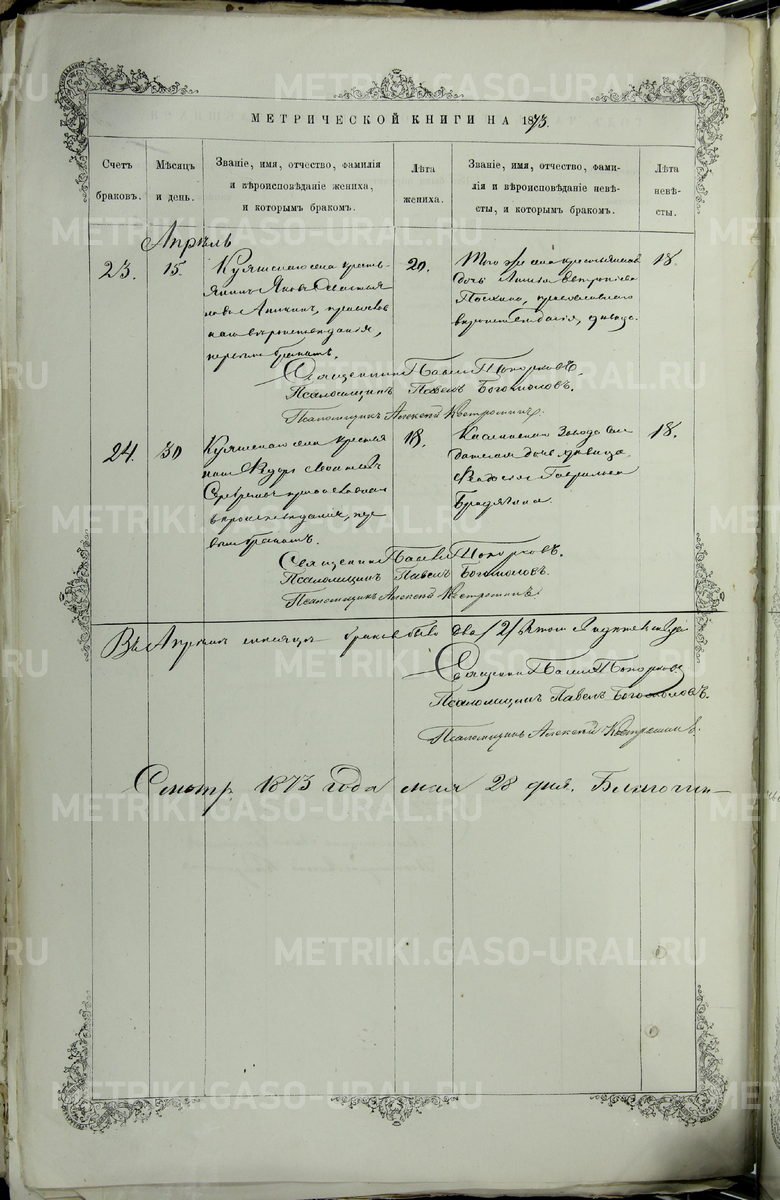 МЕТРИЧЕСКОЙ КНИГИ НА 1873.
Счетъ браковъ.
Мѣсяцъ и день.
Званіе, имя, отчество, фамилія
и вѣроисповѣданіе жениха,
и которымъ бракомъ.
Лѣта жениха.
Званіе, имя, отчество, фами-
лія и вѣроисповѣданіе невѣ-
сты, и которымъ бракомъ.
Лѣта невѣ-
сты.
Апрѣль
23.
15.
Куяшскаго села кресть-
янинъ Яковъ
Аникинъ, православ
наго вѣроисповеданія,
первымъ бракомъ.
20.
Того же села крестьянина
дочь Анна
православнаго
вероисповѣданія, девица.
18.
Священникъ Павелъ Топорковъ.
Псаломщикъ Павелъ Богомоловъ.
Псаломщикъ Алексей Костроминъ.
24.
30
Куяшскаго села крестья
нинъ Ѳедоръ
православнаго
вероисповеданія, пер
вымъ бракомъ.
18.
Каслинскаго Завода сол
датская дочь девица
Гаврилова
Брадягина.
18.
Священникъ Павелъ Топорковъ.
Псаломщикъ Павелъ Богомоловъ.
Псаломщикъ Алексей Костроминъ.
Въ Апрѣле месяце браковъ было два /2/
Священникъ Павелъ Топорковъ
Псаломщикъ Павелъ Богомоловъ.
Псаломщикъ Алексей Костроминъ.
Смотр. 1873 года мая 28 дня. Благочин-
METRIKI.GASO-URAL.RU